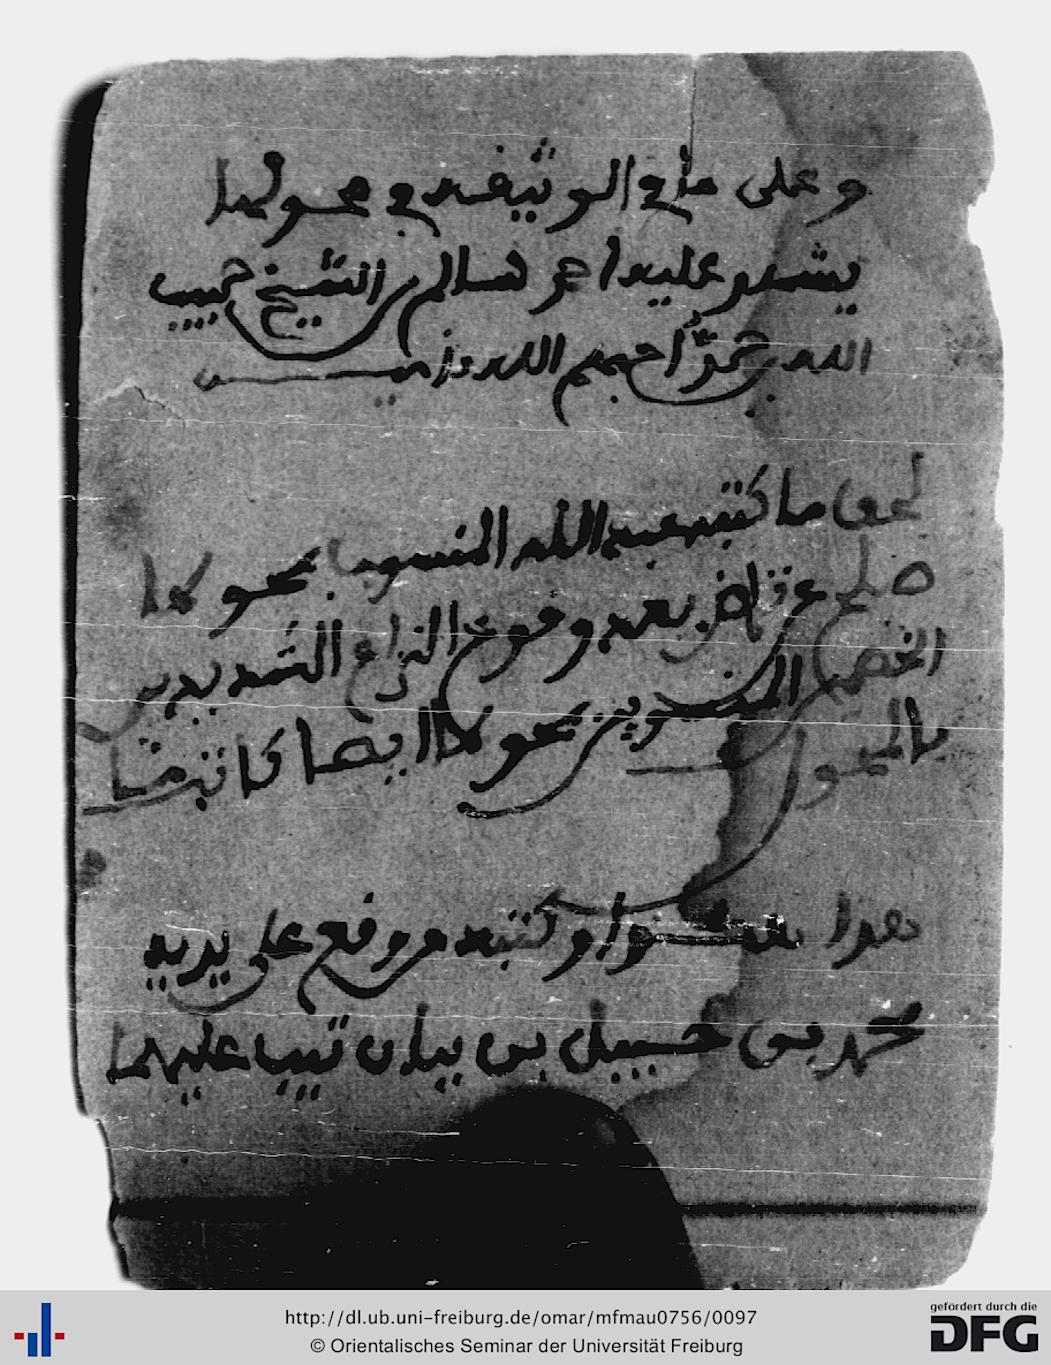 وعلى ما في الوثيقة ومحولها
يشهد عليه احمد سالم بن الشيخ حبيب
الله بن محمد احبيهم الله ءامين
لحق ما كتبه عبد الله المنسوب بمحوله
صلح عن تراض بعد وقوع النزاع الشديد بين
الخصمين المنسوبين بمحوله ايضا كاتبه
بالمحول
هذا وكتبه من وقع على يديه
محمد بن حبيبل بن بيدان تيب عليهما
http://dl.ub.uni-freiburg.de/omar/mfmau0756/0097
© Orientalisches Seminar der Universität Freiburg
gefördert durch die
DFG